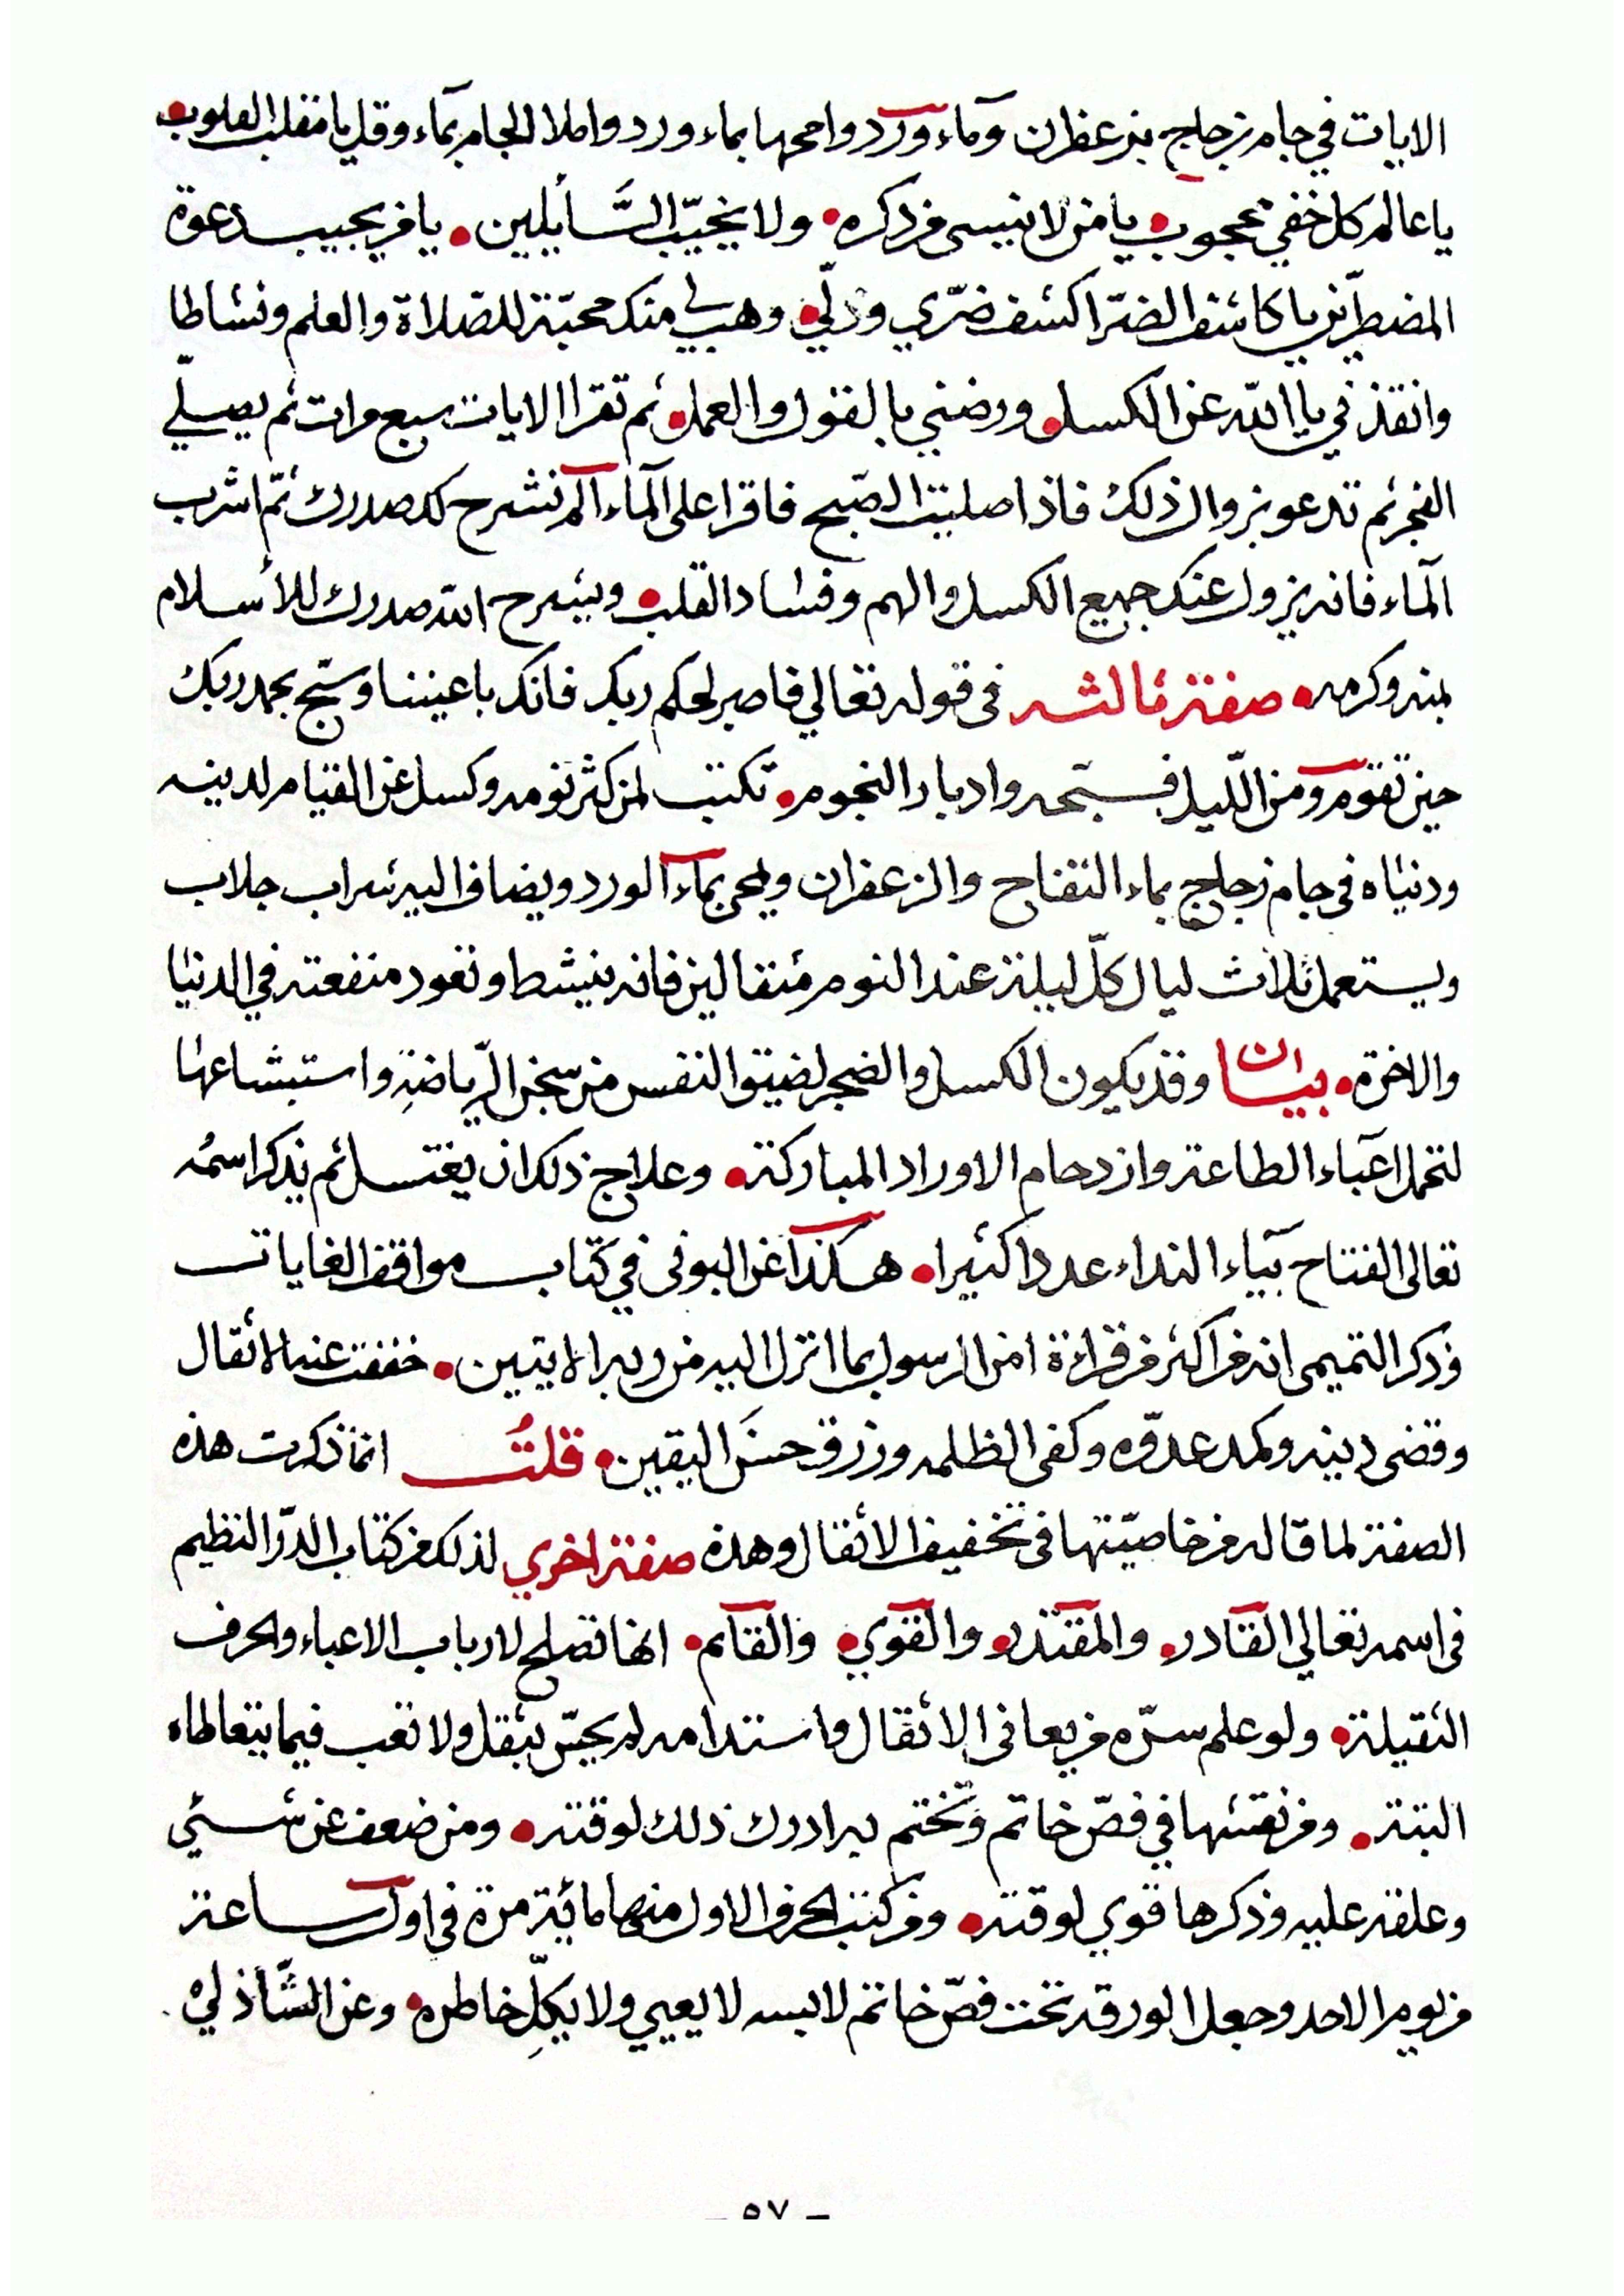 الايات في جام زجاج بزعفران وماء ورد وامحها بماء ورد واملا الجام بماء وقل يا مقلب القلوب
يا عالم كل خفي محجوب يا من لا ينسى من ذكره ولا يخيّب السَّايلين يا من يجيب دعوة
المضطرّين يا كاشف الضرّ اكشف ضرّي وذلّي وهب لي منك محبّة للصّلاة والعلم ونشاطا
وانقذني يا الله عن الكسل ورضني بالقول والعمل ثم تقرا الايات سبع مرات ثم يصلّي
الفجر ثم تدعو بزوال ذلك فاذا صليت الصّبح فاقرا على الماء الم نشرح لك صدرك ثمّ اشرب
الماء فانه يزول عنك جميع الكسل والهم وفساد القلب ويشرح الله صدرك للأسلام
بمنه وكرمه صفة ثالثه في قوله تعالي فاصبر لحكم ربك فانك باعيننا وسبّح بحمد ربك
حين تقوم ومن اللّيل فسبّحه وادبار النجوم تكتب لمن كثر نومه وكسل عن القيام لدينه
ودنياه في جام زجاج بماء التفاح والزعفران ويمحى بماء الورد ويضاف اليه شراب جلاب
ويستعمل ثلاث ليال كلّ ليلة عند النوم مثقالين فانه ينشط وتعود منفعته في الدنيا
والاخرة بيان وقد يكون الكسل والضجر لضيق النفس من سجن الرّياضة واستبشاعها
لتحمل اعباء الطاعة وازدحام الاوراد المباركة وعلاج ذلك ان يغتسل ثم يذكر اسمُه
تعالى الفتاح بياء النداء عددا كثيرا هكذا عن البوني في كتاب مواقف الغايات
وذكر التميمي انه من اكثر من قراءة امن الرسول بما انزل اليه من ربه الايتين خففت عنه الاثقال
وقضى دينه وكمد عدوّه وكفى الظلمه ورزق حسنَ اليقين قلتُ انما ذكرت هذه
الصفة لما قاله من خاصيّتها في تخفيف الاثقال وهذه صفة اخري لذلك من كتاب الدرّ النظيم
في اسمه تعالي القادر والمقتدر والقوي والقائم انها تصلح لارباب الاعباء والحرف
الثقيلة ولو علم سرّه من يعاني الاثقال واستدامه لم يحسّ بثقل ولا تعب فيما يتعاطاه
البتة ومن نقشها في فصّ خاتم وتختم به ادرك ذلك لوقته ومن ضعف عن شئي
وعلقه عليه وذكرها قوي لوقته ومن كتب الحرف الاول منها مائة مرة في اول ساعة
من يوم الاحد وجعل الورقه تحت فصّ خاتم لابسه لا يعيي ولا يكلّ خاطره وعن الشّاذلي
– ٥٧ –